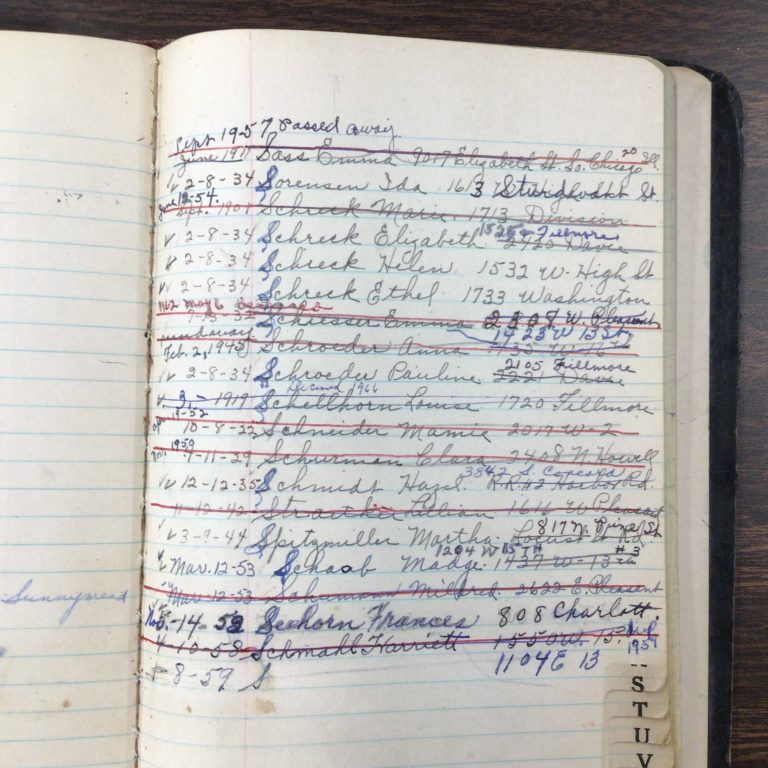 Sept 1957 Passed away
June 1917 Sass Emma 9017 Elizabeth St. So. Chicago 20 Ill.
2-8-34 Sorensen Ida 1613 St.
June 12-54.
Sept. 1901 Schreck Marie 1713 Division
1525 Fillmore
2-8-34 Schreck Elizabeth 2420 Davie
2-8-34 Schreck Helen 1532 W. High St
2-8-34 Schreck Ethel 1733 Washington
1962 May 6
7-13-32 Schiesser Emma 2307 W. Pleasant
1423 W 13 St
Feb. 2, 1945 Schroeder Anna
2105 Fillmore
2-8-34 Schroeder Pauline 2221 Davie
1966
3-1919 Schellhorn Louise 1720 Fillmore
19-52
10-8-22 Schneider Mamie 2017 W-2
Nov. 1959
9-11-29 Schurman Clara 2408 N Howell
3842 S. Concord
12-12-35 Schmidt Hazel R.R. #2 Harbor Rd.
11-12-42 Lillian 1616 W Pleasant
817 N. Pine St
3-9-44 Spitzmiller Martha Locust St Rd.
1204 W 15 TH #3
Mar. 12-53 Schaab Madge 1427 W-13 th
Mar. 12-53 Schumann Mildred 2622 E. Pleasant
Sunnymead
5-14-59 Seehorn Frances 808 Charlott
4-10-58 Schmahl Harriett 1550 W. 15.
1959
1104 E 13
8-59 S
S
T
U
V